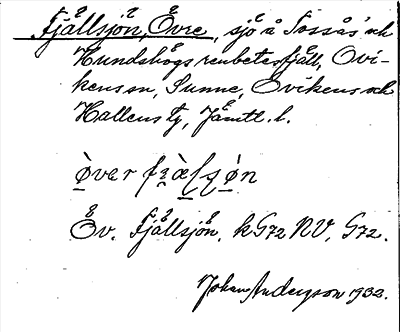 Fjällsjön, Övre, sjö å Tossås och
Hundshögs renbetesfjäll, Ovi-
kens sn, Sunne, Ovikens och
Hallens tg, Jämtl. l.
Öv. Fjällsjön, kG72 NV, G72.
Johan Anderson 1932.